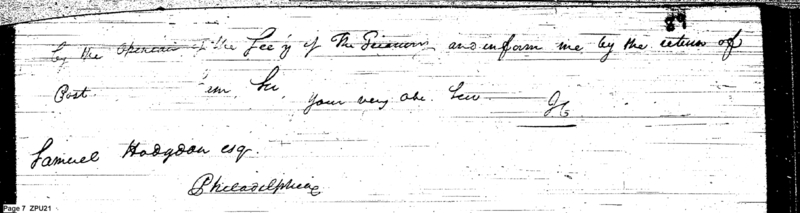 89
by the Opinion of the Sec'y of The Treasury and inform me by the return of
Post I am Sir
your very obe. Serv
JG
Samuel Hodgdon esqr
Philadelphia
Page 7 ZPU21